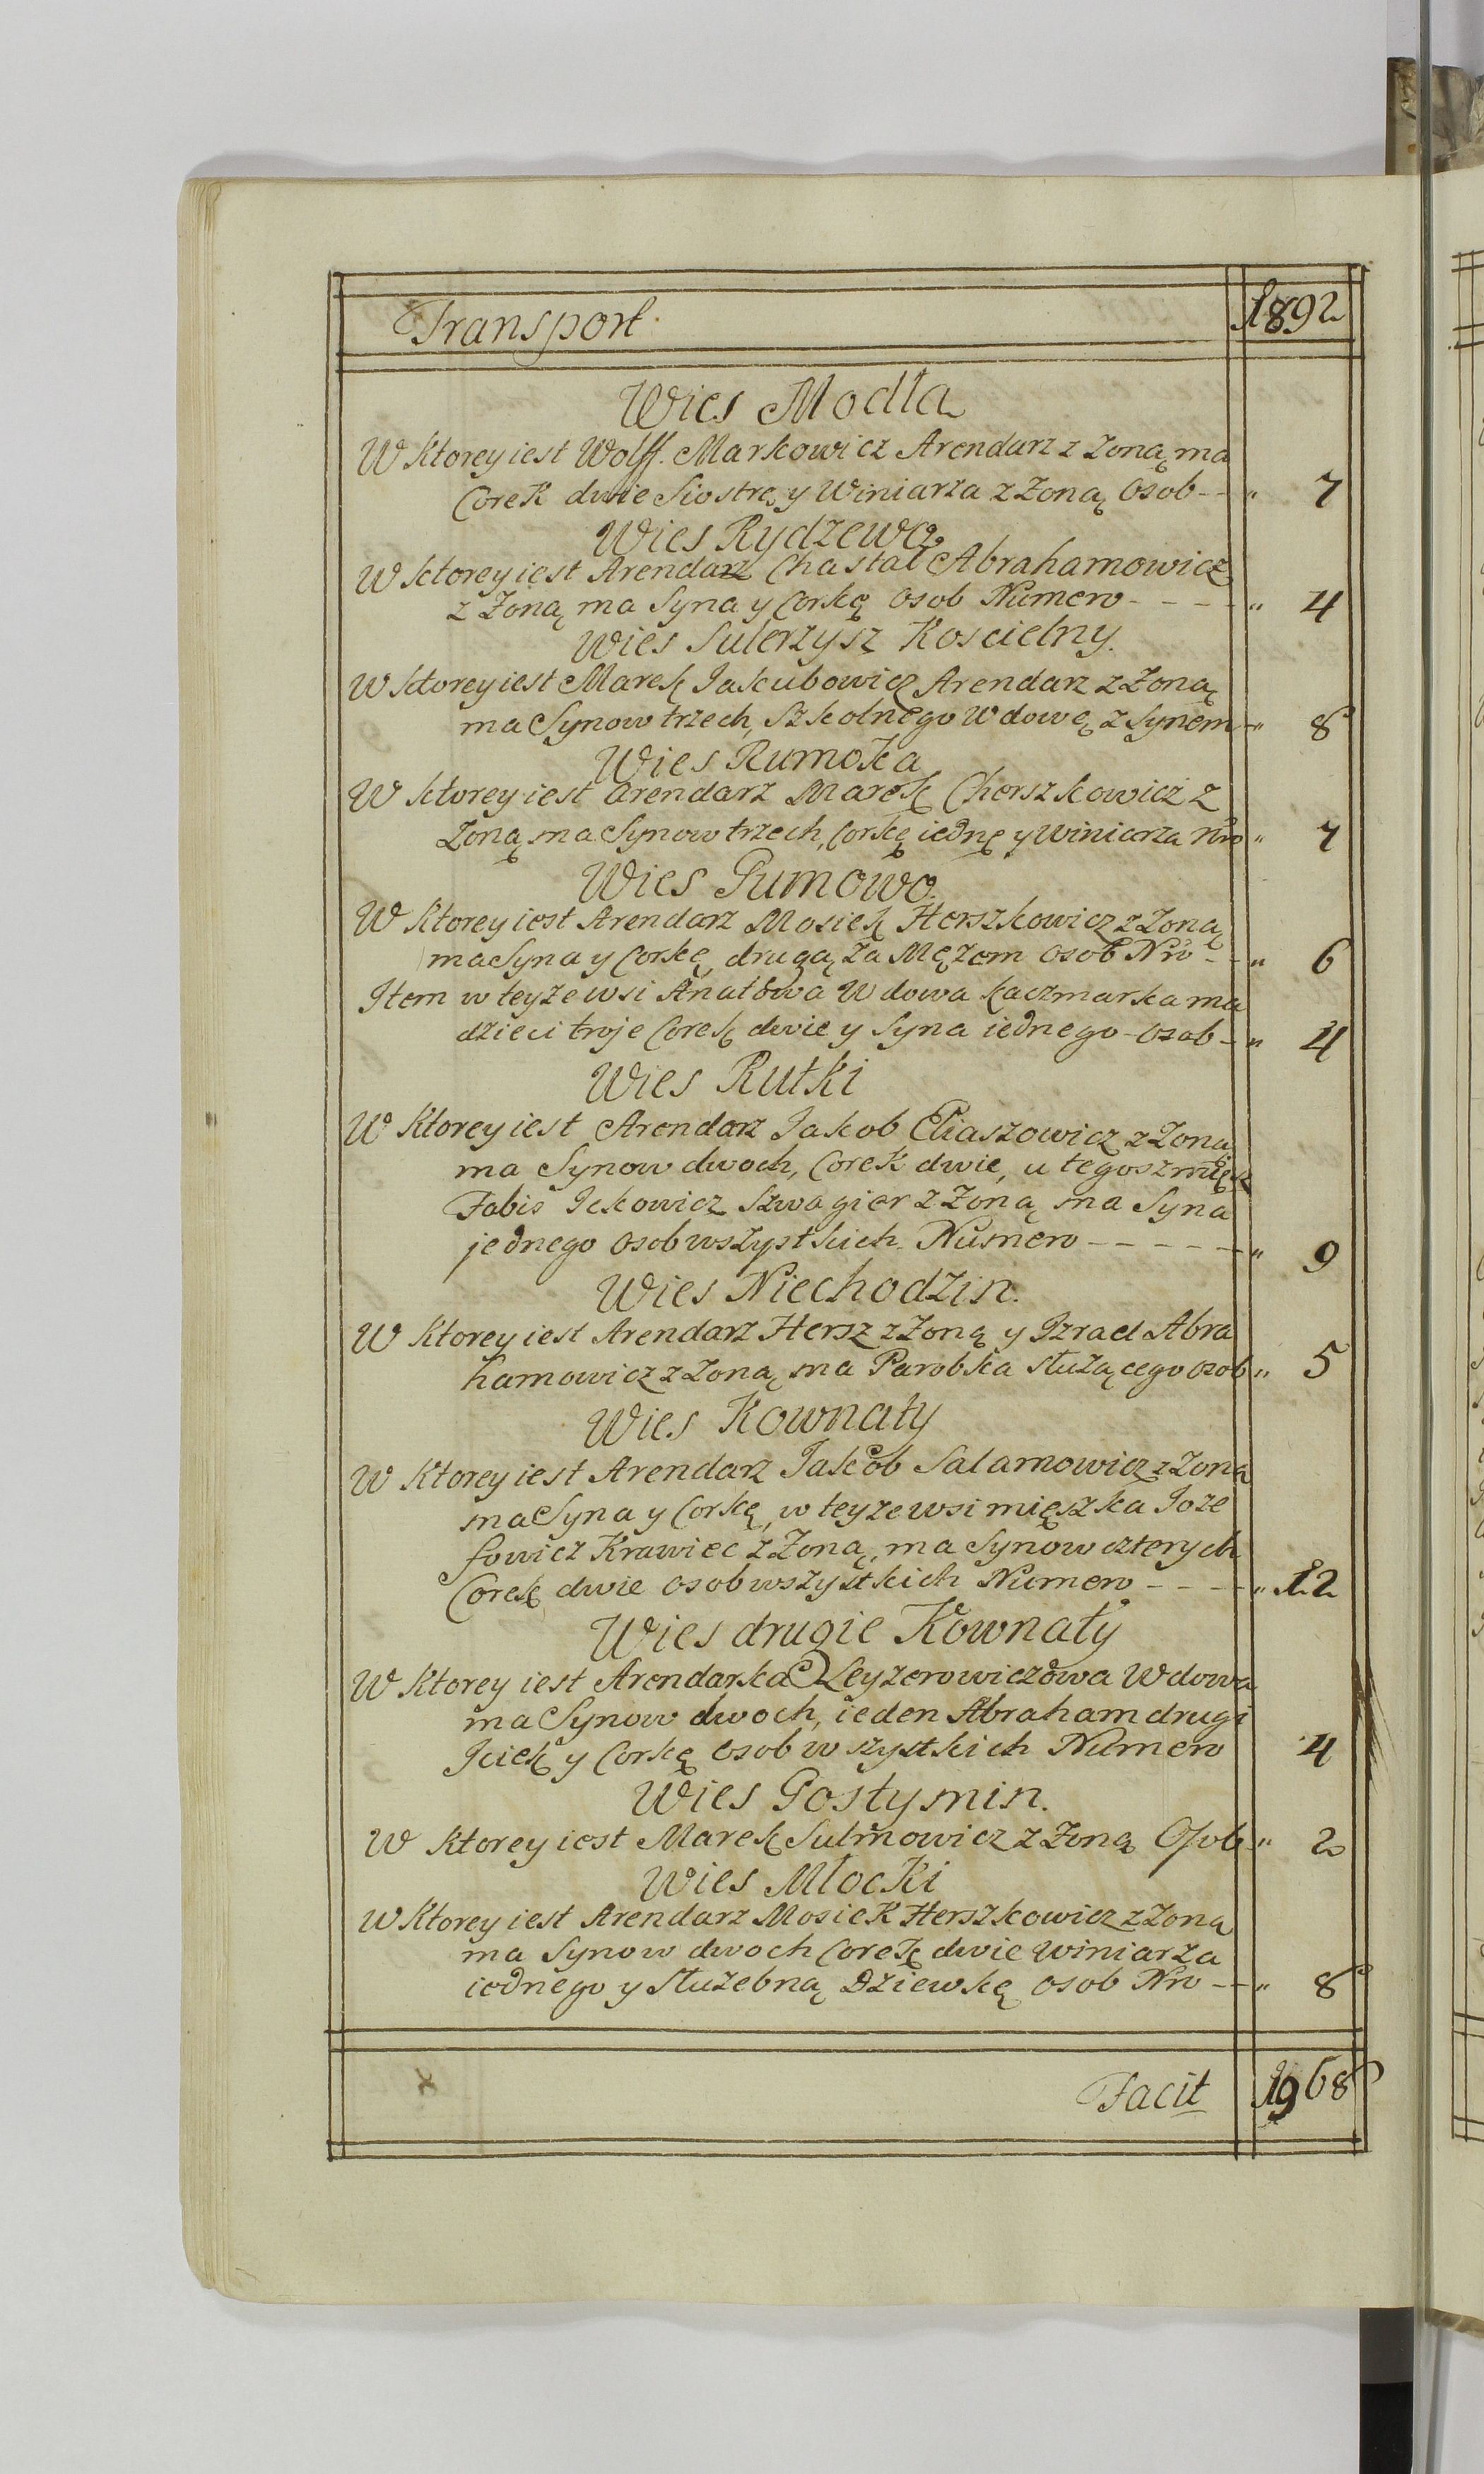 Transport 1892
Wies Modła
W Ktorey iest Wolff. Markowicz Arendarz z Zoną ma
Corek dwie Siostrę y Winiarza z Zoną Osob - - " 7
Wies Rydzewo
W Ktorey iest Arendarz Chastal Abrahamowicz
z Zoną ma Syna y Corkę Osob Numero - - - - " 4
Wies Sulerzysz Koscielny.
W Ktorey iest Marek Jakubowicz Arendarz z Zoną
ma Synow trzech, Szkolnego Wdowę z Synem - " 8
Wies Rumoka
W Ktorey iest Arendarz Marek Cherszkowicz z
Zoną ma Synow trzech, Corkę iednę y Winiarza Nro " 7
Wies Gumowo.
W Ktorey iest Arendarz Mosiek Herszkowicz z Zoną
ma Syna y Corkę, drugą za Mężem Osob Nro - - " 6
Item w teyże wsi Anatowa Wdowa Kaczmarka ma
dzieci troje Corek dwie y Syna iednego - Osob - " 4
Wies Rutki
W Ktorey iest Arendarz Jakob Eliaszowicz z Zoną
ma Synow dwoch, Corek dwie, u tegosz
Fabis Ickowicz Szwagier z Zoną ma Syna
jednego Osob wszystkich Numero - - - - - - " 9
Wies Niechodzin.
W Ktorey iest Arendarz Hersz z Zoną y Izrael Abra
hamowicz z Zoną ma Parobka służącego Osob " 5
Wies Kownaty
W Ktorey iest Arendarz Jakob Salamowicz z Zoną
ma Syna y Corkę, w teyze wsi mięszka Joze
fowicz Krawiec z Zoną, ma Synow czterych
Corek dwie Osob wszystkich Numero - - - - " 12
Wies drugie Kownaty
W Ktorey iest Arendarka Leyzerowiczowa Wdowa
ma Synow dwoch, ieden Abraham drugi
Iciek y Corkę Osob wszystkich Numero 4
Wies Gostymin.
W Ktorey iest Marek Sulmowicz z Zoną Osob - " 2
Wies Młocki
W Ktorey iest Arendarz Mosiek Herszkowicz z Zoną
ma Synow dwoch Corek dwie Winiarza
iednego y Służebną Dziewkę Osob Nro - - " 8
Facit 1968